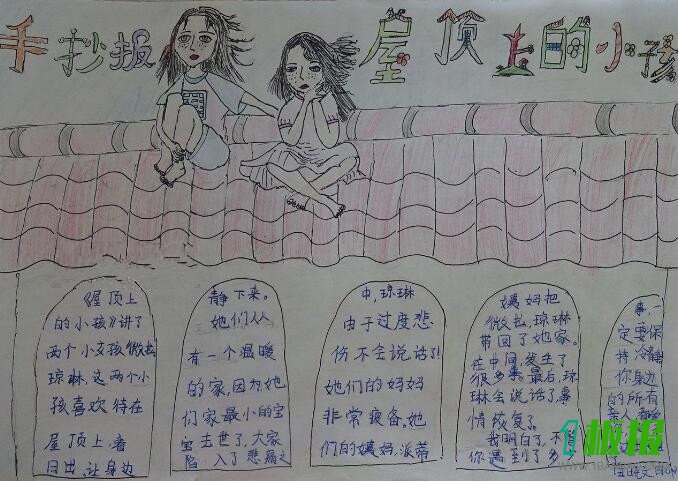 手抄报 屋顶上的小孩
《屋顶上
的小孩》讲了
两个小女孩微拉
琼琳,这两个小
孩喜欢待在
屋顶上,看
日出,让身边
静下来。
她们人人
有一个温暖
的家,因为她
们家最小的宝
宝去世了,大家
陷入了悲痛之
中,琼琳
由于过度悲
伤不会说话了!
她们的妈妈
非常疲备。她
们的姨妈,派蒂
姨妈把
微拉,琼琳
带回了她家。
在中间,发生了
很多事最后,琼
琳会说话了,事
情恢复了。
我明白了,不管
你遇到了多
事,一
定要保
持冷静
你身边
的所有
亲人
1板报